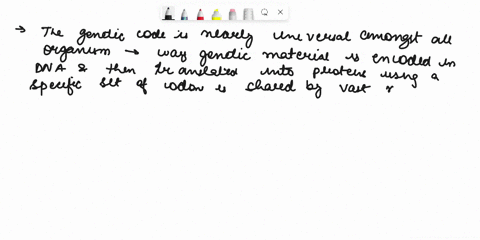 → The genetic code is nearly universal amongst all
organism → way genetic material is encoded in
DNA & then translated into proteins using a
specific set of codon is shared by vast